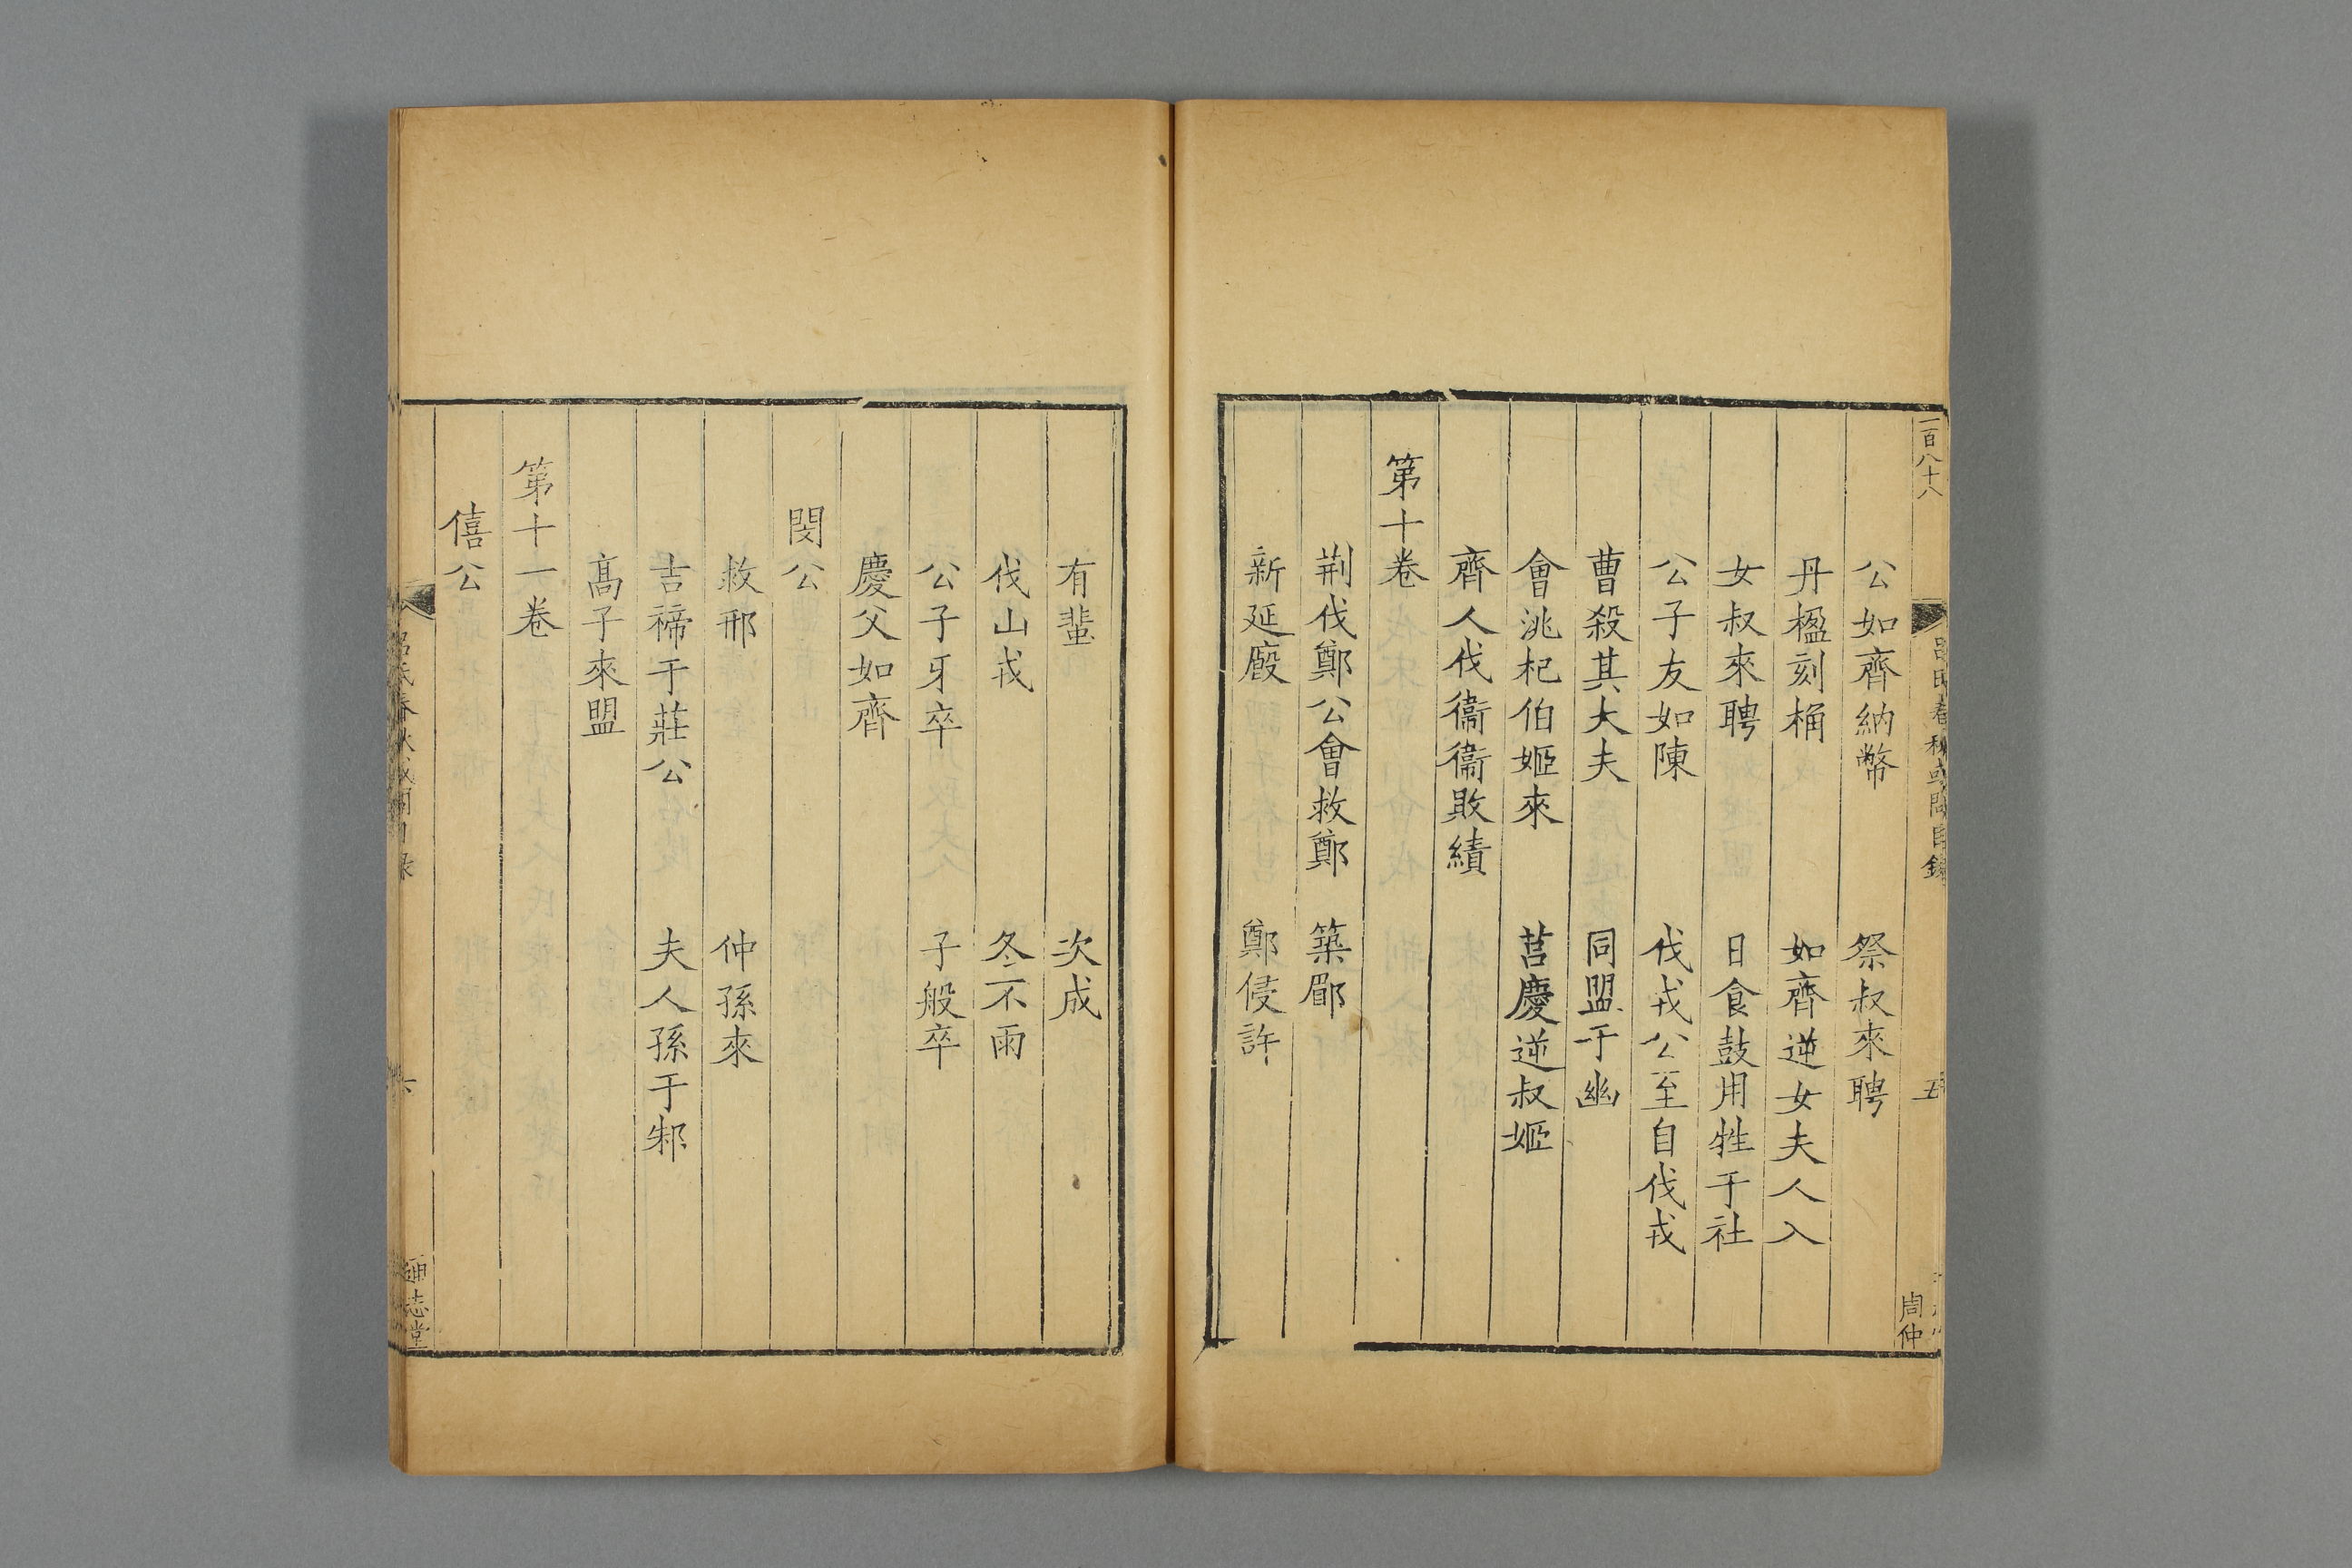 一百八十八
呂氏春秋或問目錄
五
周仲
公如齊納幣　祭叔來聘
丹楹刻桷　如齊逆女夫人入
女叔來聘　日食鼓用牲于社
公子友如陳　伐戎公至自伐戎
曹殺其大夫　同盟于幽
會洮杞伯姬來　莒慶逆叔姬
齊人伐衞衞敗績
第十卷
荆伐鄭公會救鄭　築郿
新延廄　鄭侵許
有蜚　次成
伐山戎　冬不雨
公子牙卒　子般卒
慶父如齊
閔公
救邢　仲孫來
吉禘于莊公　夫人孫于邾
高子來盟
第十一卷
僖公
呂氏春秋或問目錄
六
通志堂